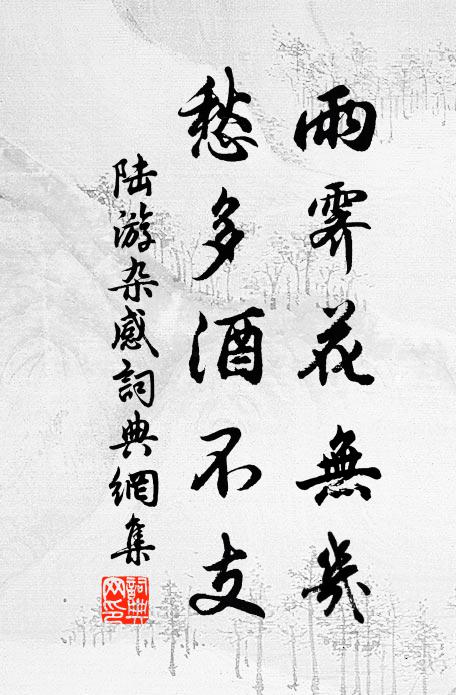 雨霽花無幾
愁多酒不支
陆游杂感詞典網集
詞典网印